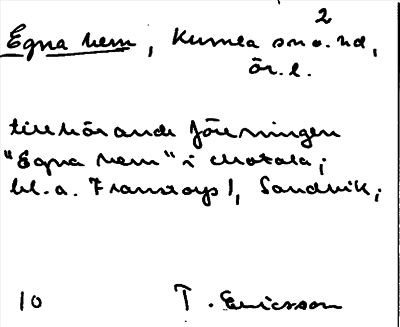 2
Egna hem, Kumla sn o. hd,
ör. l.
tillhörande föreningen
"Egna hem" i Motala;
bl.a. Framtorp 1, Sandvik;
10 T. Ericsson